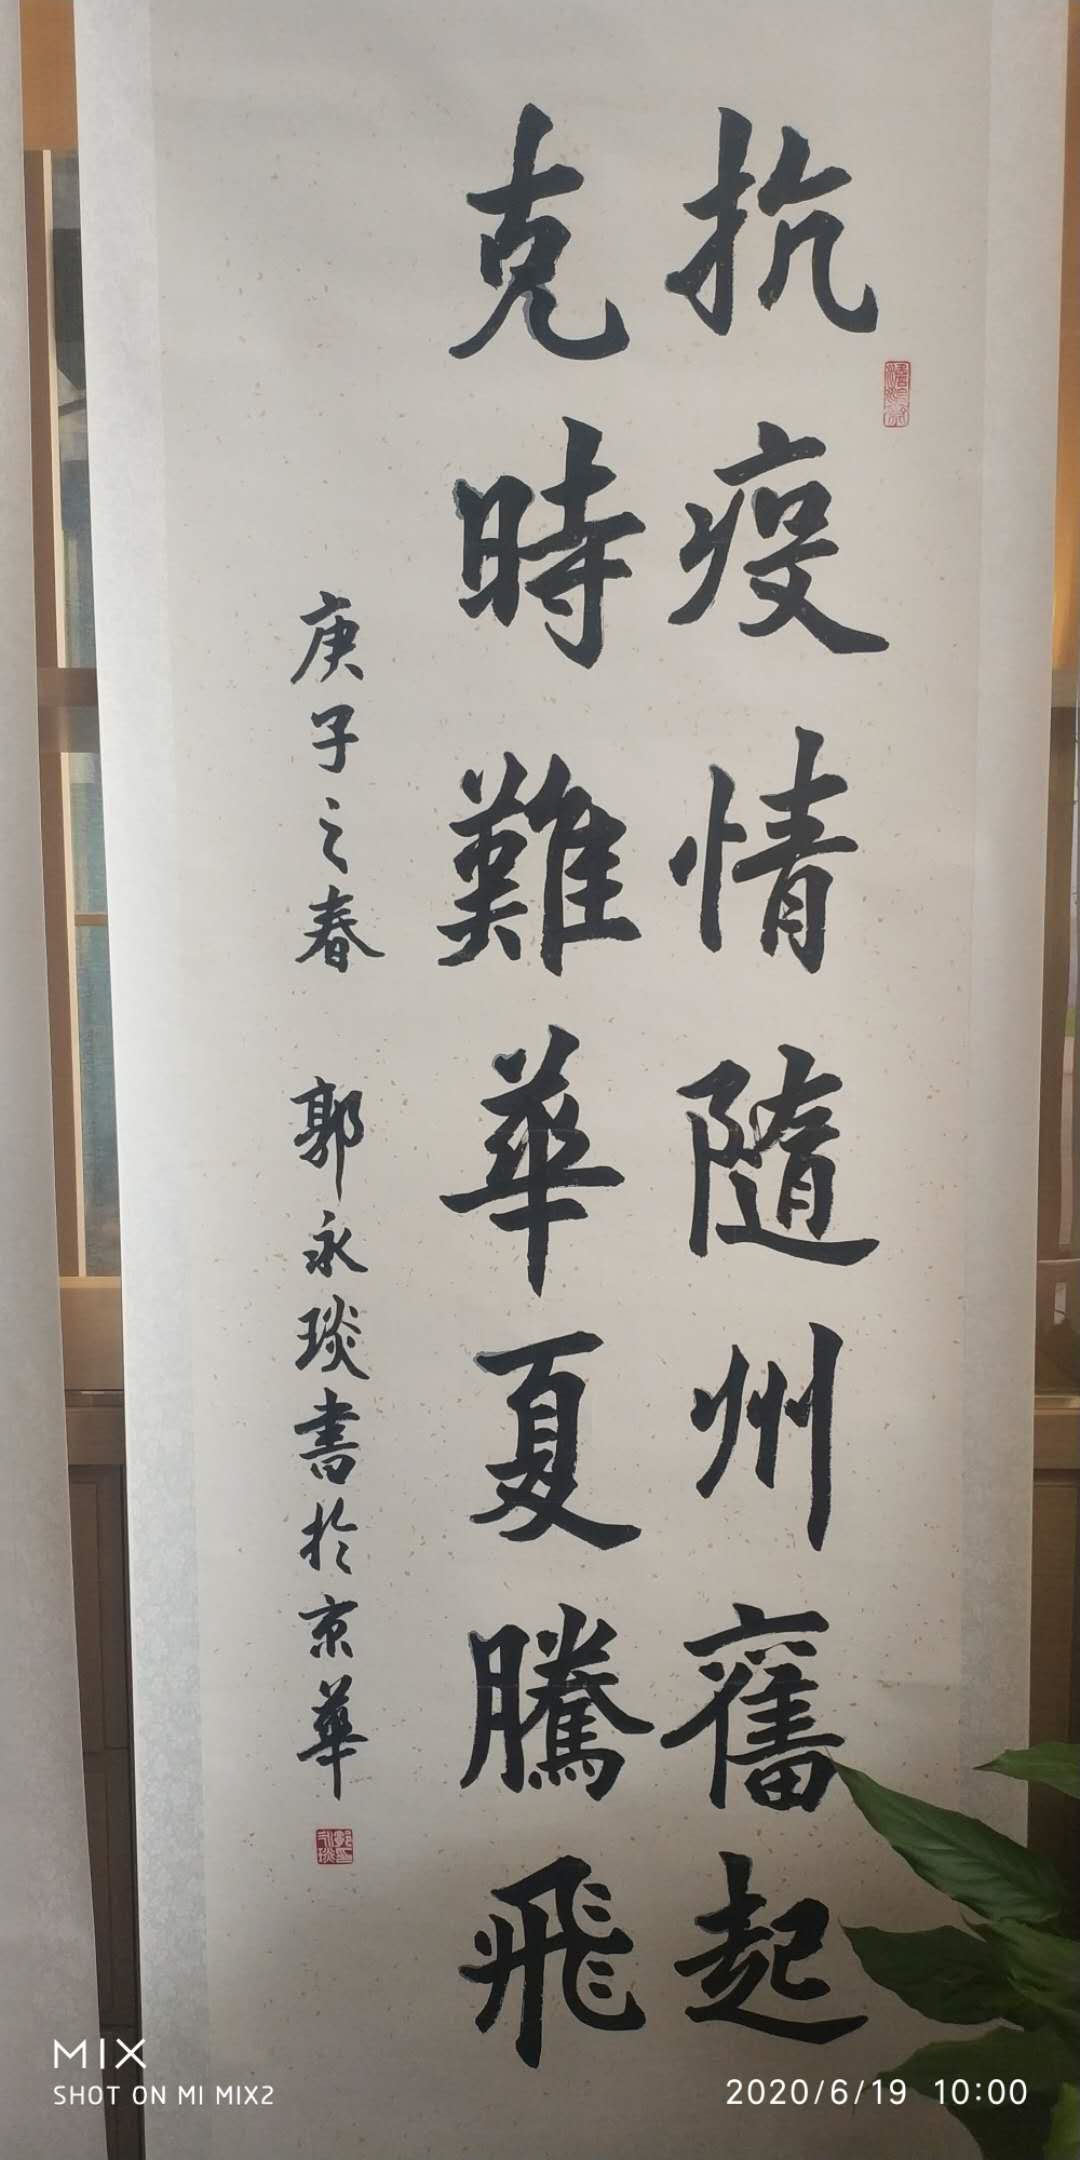 抗疫情隨州舊起
克時難華夏騰飛
庚子之春 郭永琰書於京華
MIX
SHOT ON MI MIX2
2020/6/19 10:00